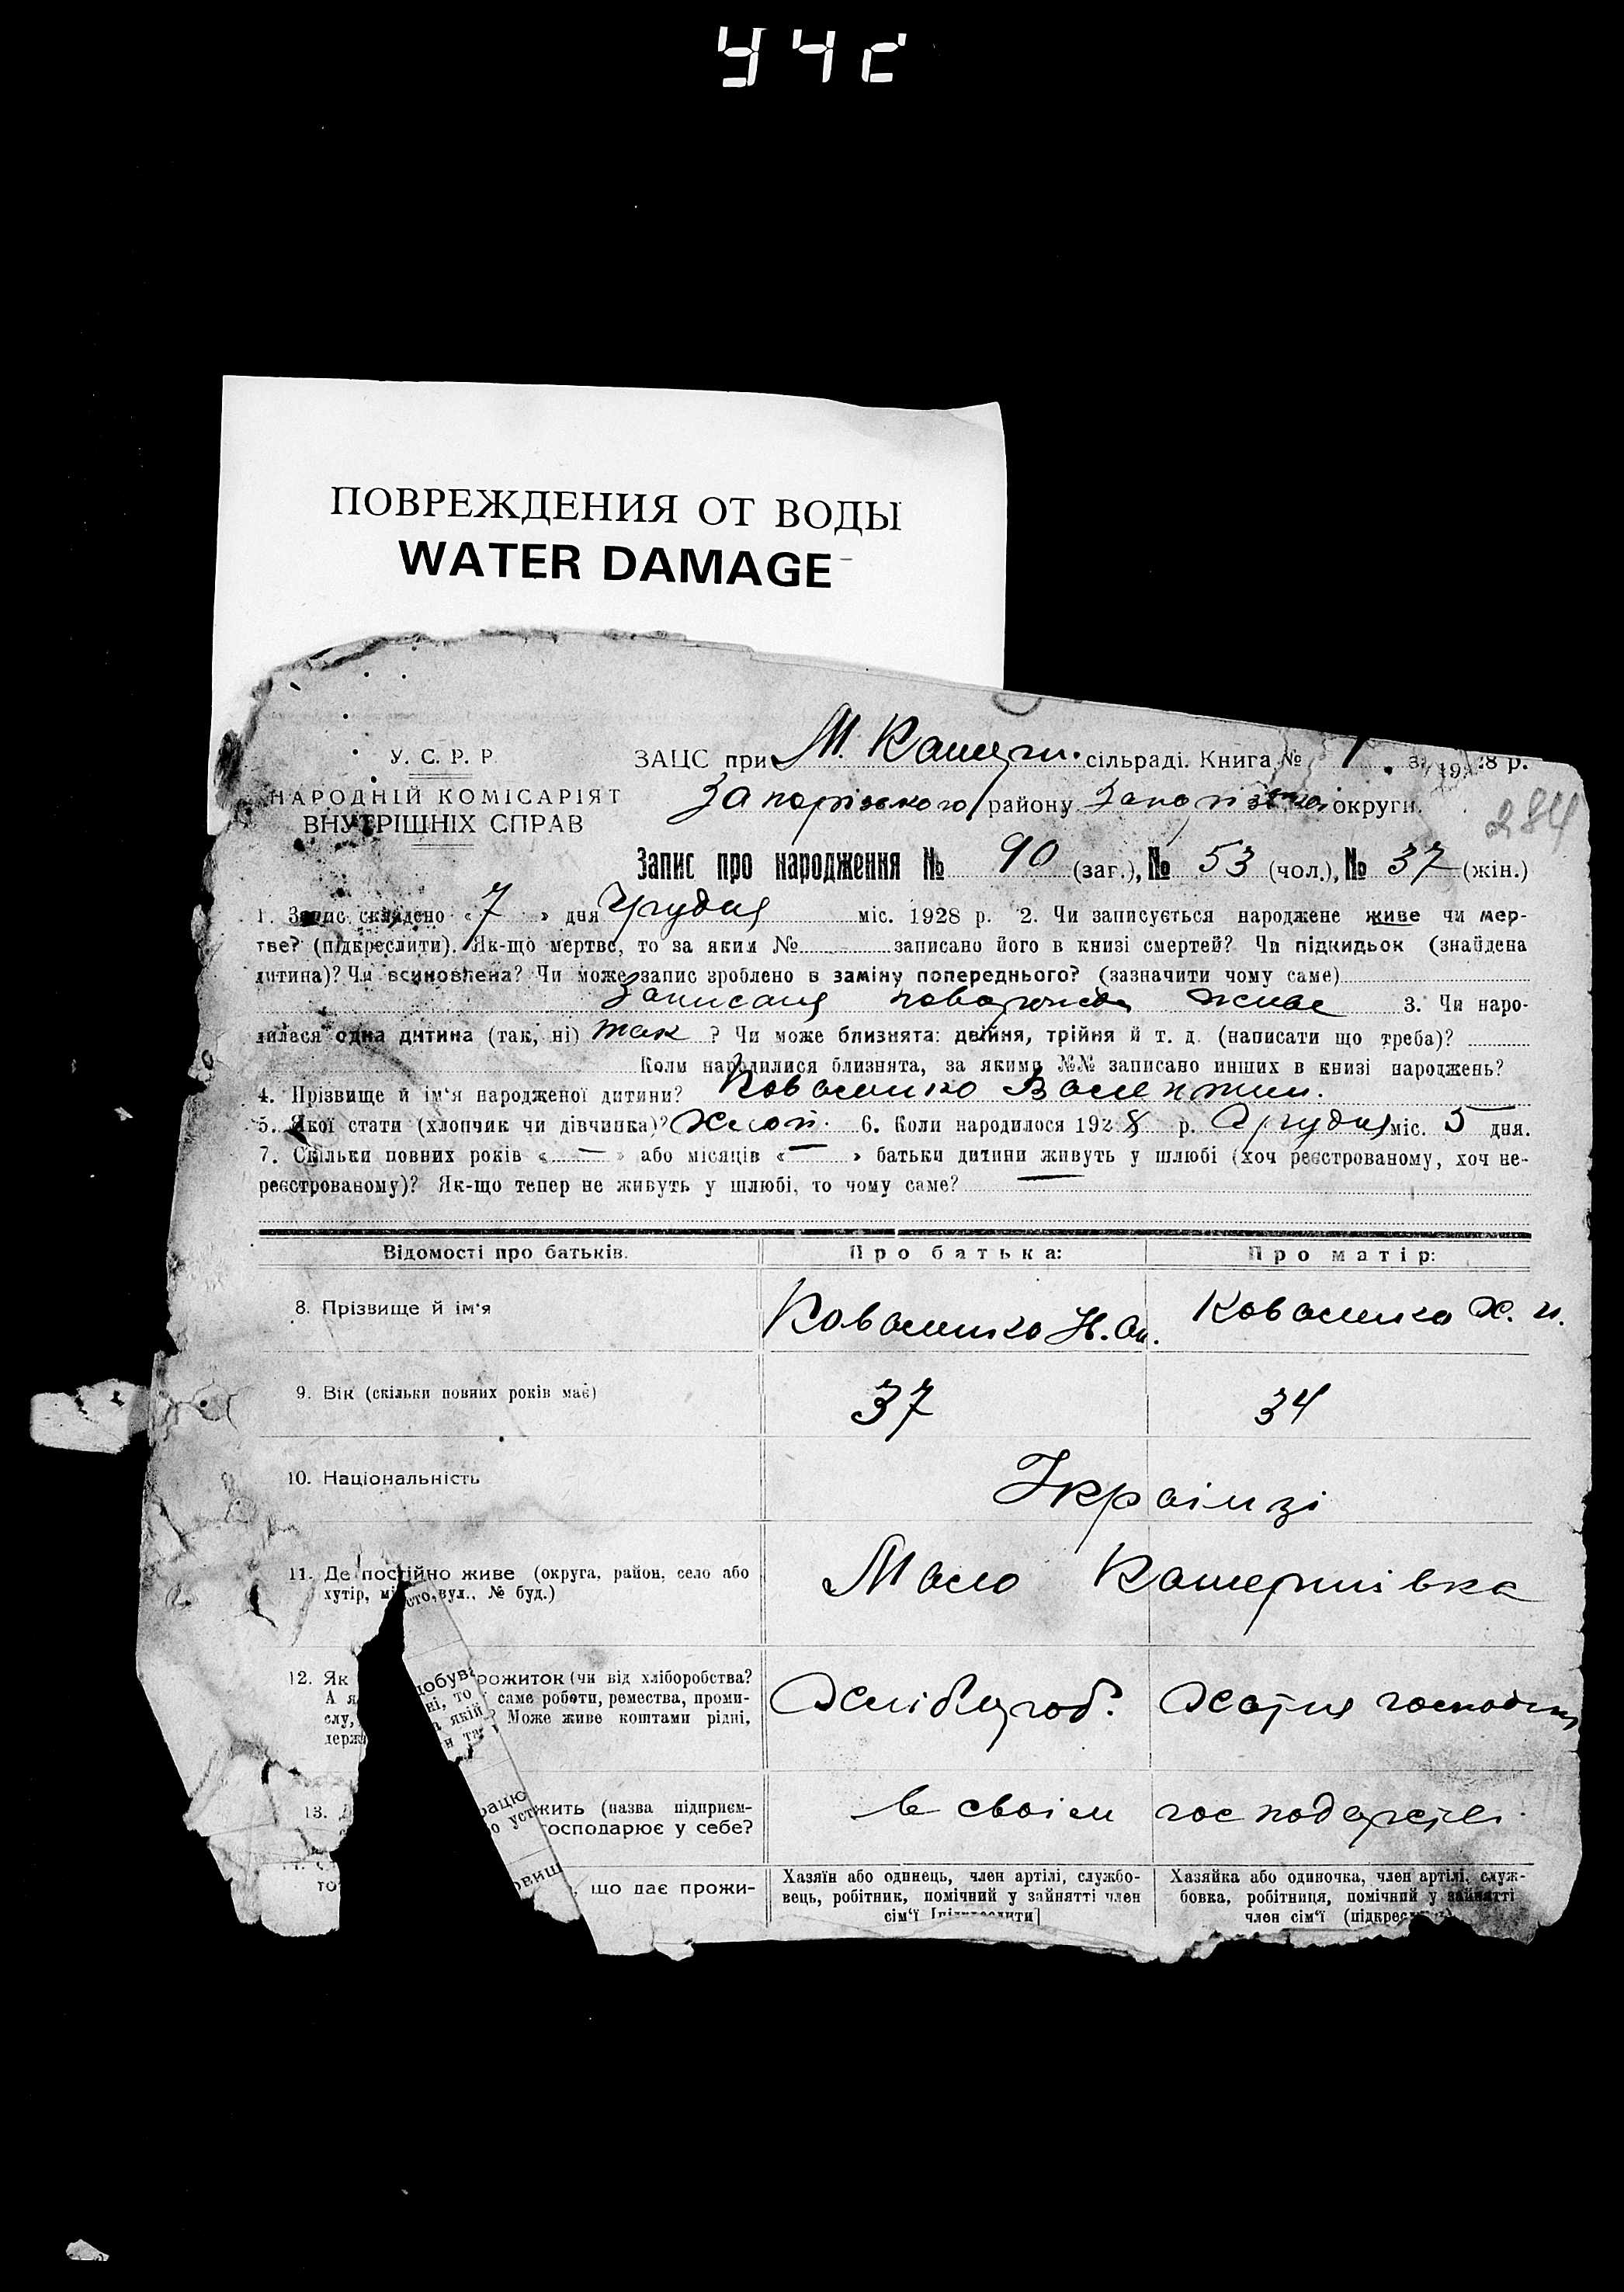 ПОВРЕЖДЕНИЯ ОТ ВОДЫ
WATER DAMAGE
У. С. Р. Р.
НАРОДНІЙ КОМІСАРІЯТ
ВНУТРІШНІХ СПРАВ
ЗАЦС при М. Катери. сільраді. Книга № 1. за 1928 р.
Запорізького району Запорізької округи.
284
Запис про народження № 90 (заг.), № 53 (чол.), № 37 (жін.)
1. Запис складено «7» дня Грудня міс. 1928 р. 2. Чи записується народжене живе чи мер-
тве? (підкреслити). Як-що мертве, то за яким № записано його в книзі смертей? Чи підкидьок (знайдена
дитина)? Чи всиновлена? Чи може запис зроблено в заміну попереднього? (зазначити чому саме)
живе 3. Чи наро-
дилася одна дитина (так, ні) так ? Чи може близнята: двійня, трійня й т. д. (написати що треба)?
Коли народилися близнята, за якими №№ записано инших в книзі народжень?
4. Прізвище й ім‘я народженої дитини? Коваленко Валентин.
5. Якої стати (хлопчик чи дівчинка)? Хлоп. 6. Коли народилося 1928 р. Грудня міс. 5 дня.
7. Скільки повних років «—» або місяців «—» батьки дитини живуть у шлюбі (хоч реєстрованому, хоч не-
реєстрованому)? Як-що тепер не живуть у шлюбі, то чому саме? —
Відомості про батьків. Про батька: Про матір:
8. Прізвище й ім‘я Коваленко Н. Ан. Коваленко Х. И.
9. Вік (скільки повних років має) 37 34
10. Національність Українці
11. Де постійно живе (округа, район, село або
хутір, місто, вул., № буд.) Мало Катеринівка
12. Як добува рожиток (чи від хліборобства?
А я ні, то саме роботи, ремества, проми-
слу, а якій? Може живе коштами рідні,
держа н та
Хлібороб. Хатня господин
13. рацю жить (назва підприєм-
о уст господарює у себе?
в своїм господарстві
то овищ , що дає прожи-
Хазяїн або одинець, член артілі, службо-
вець, робітник, помічний у зайнятті член
сім‘ї [підкреслити]
Хазяйка або одиночка, член артілі, служ-
бовка, робітниця, помічний у зайнятті
член сім‘ї (підкресл